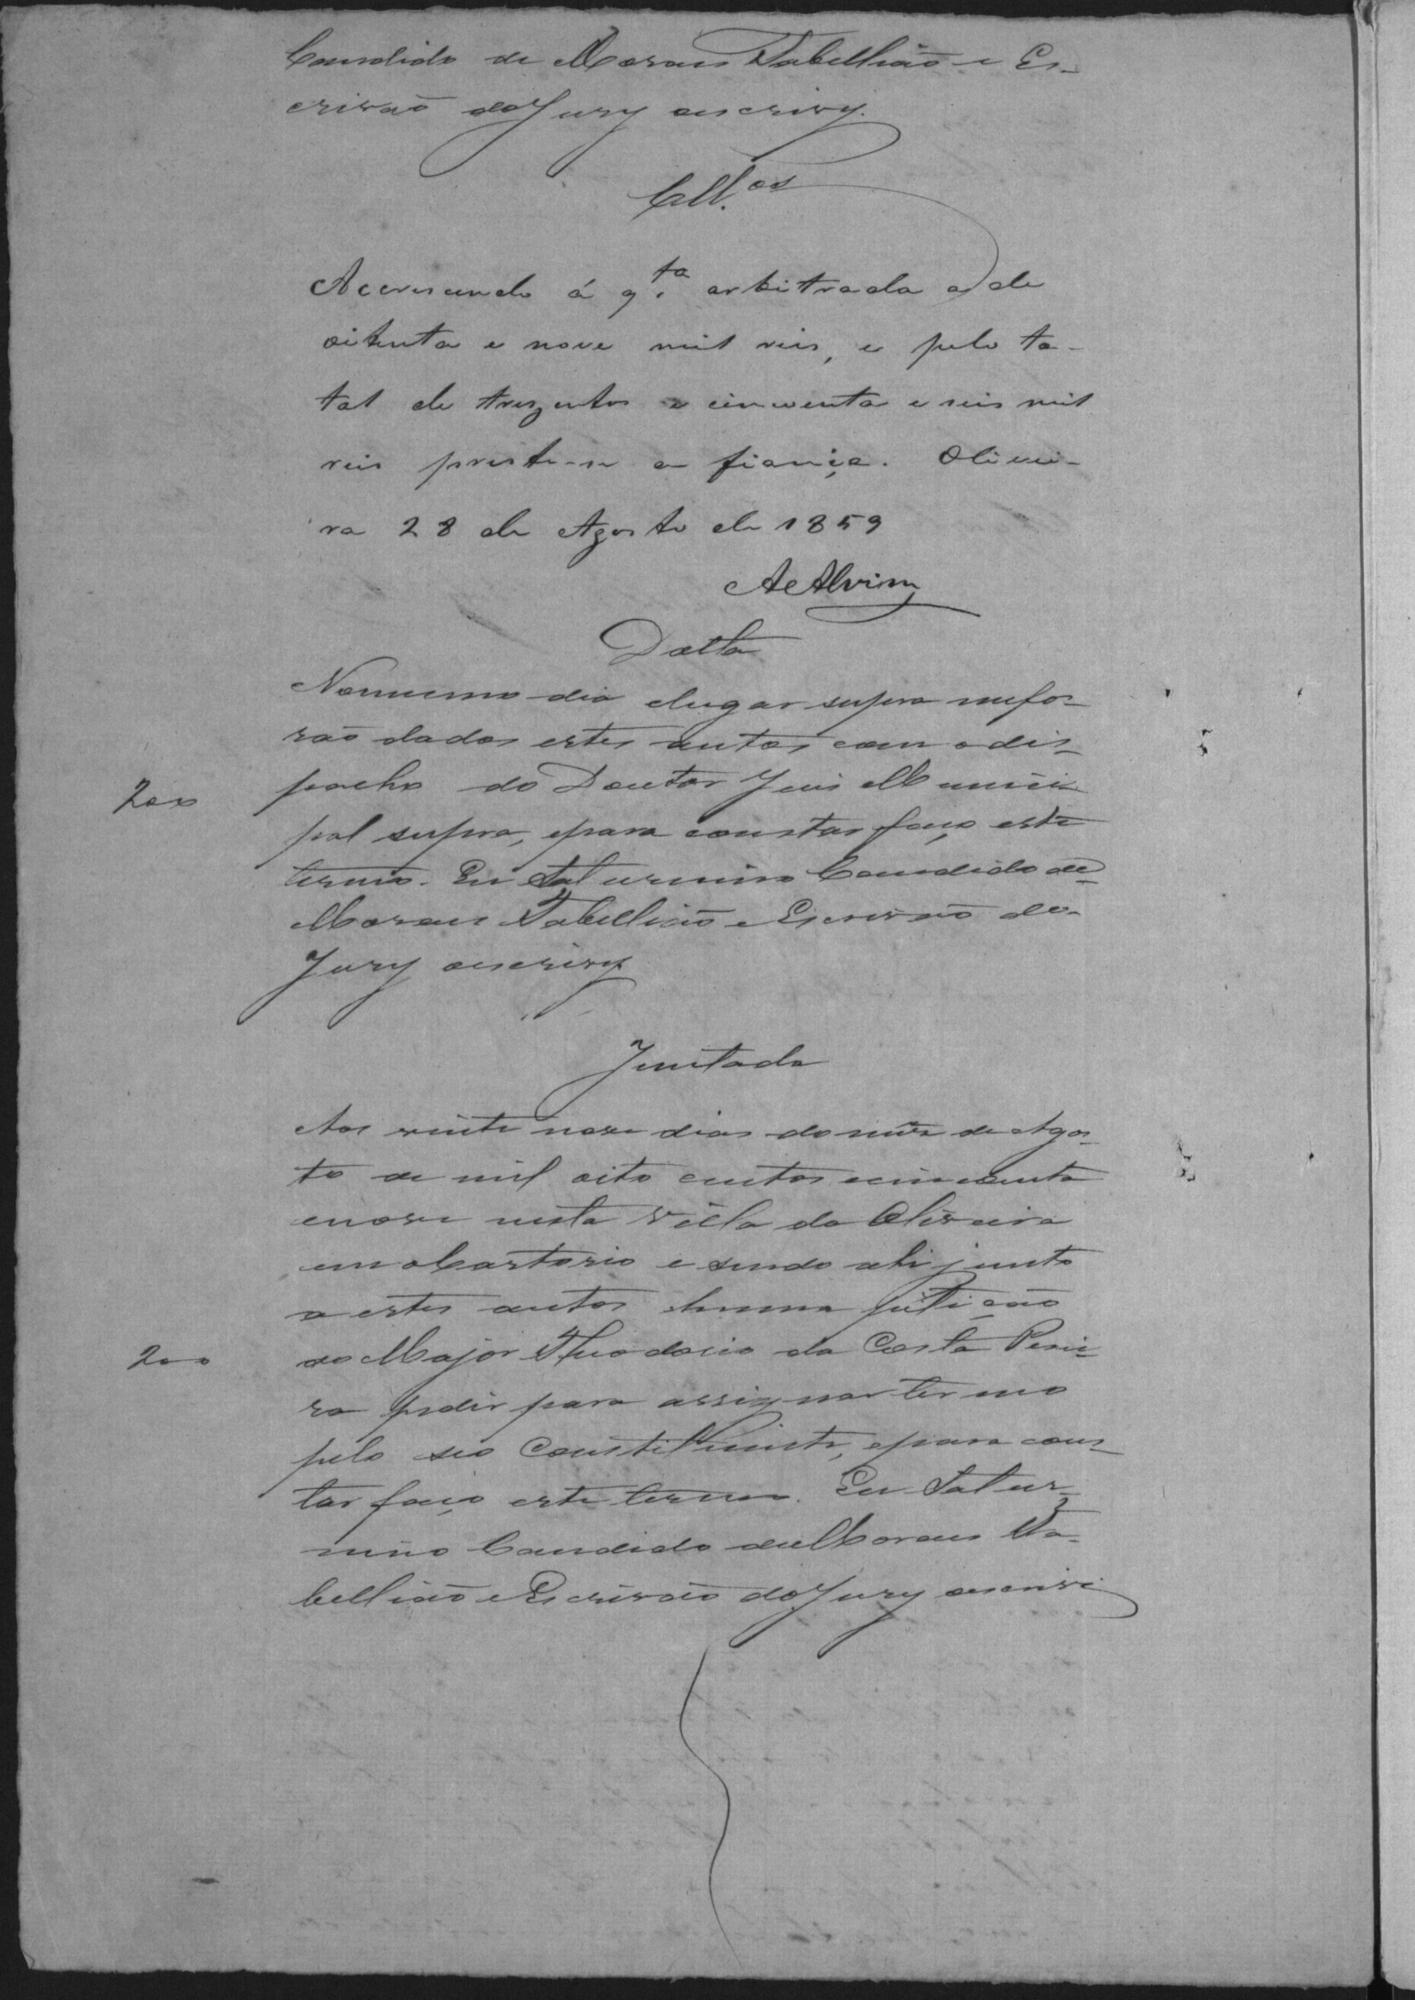 Candido de Moraes Tabellião e Es-
crivão do Jury escrivy.
Cll.os
Accrescendo á q.ta arbitrada a de
oitenta e nove mil reis, e pelo to-
tal de trezentos e cincoenta e seis mil
reis preste-se a fiança. Olivei-
ra 28 de Agosto de 1859
AeAlvim
Datta
Nomesmo dia elugar supra mefo-
rão dados estes autos com o dis-
200
pacho do Doutor Juis Munici-
pal supra, epara constar faço este
termo. Eu Saturnino Candido de
Moraes Tabellião e Escrivão do
Jury oescrivy
Juntada
Aos vinte nove dias do mes de Agos-
to de mil oito centos ecincoenta
enove nesta Villa da Oliveira
em o Cartorio e sendo ahi junto
a estes autos huma petição
200
do Major Theodosio da Costa Perei-
ra pedir para assignar termo
pelo seo Constituinte, epara cons-
tar faço este termo. Eu Satur-
nino Candido de Moraes Ta-
bellião e Escrivão do Jury oescrivi